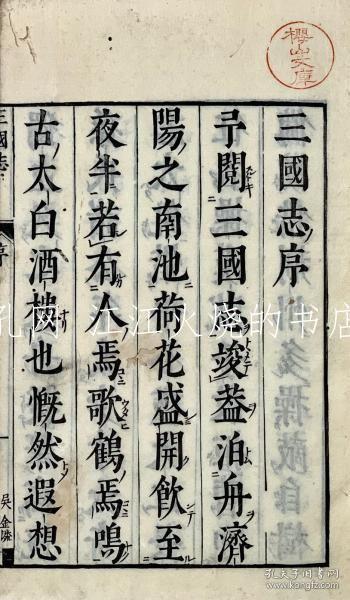 櫻山文庫
三國志序
予閱三國志竣葢泊舟濟
陽之南池荷花盛開飲至
夜半若有人焉歌鶴焉鳴
古太白酒樓也慨然遐想
三國志
序
孔网 江江火烧的书店
孔夫子旧书网